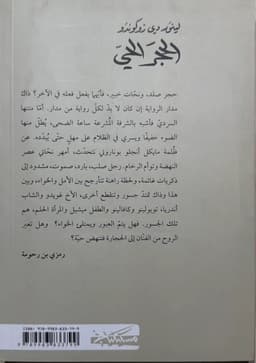 ليونور دي ريكوندو
الحجر الحيّ
حجر صلد، ونحّات خبير، فأيّهما يفعل فعله في الآخر؟ ذاك
مدار الرواية إن كان لا بدّ لكلّ رواية من مدار. أمّا متنها
السرديّ فأشبه بالشرفة المُشرعة ساعة الضحى، يُطلّ منها
الضوء خفيفًا ويسري في الظلام على مهل حتّى يبدّده. عن
ظلمة مايكل أنجلو بوناروتي نتحدّث، أمهر نحّاتي عصر
النهضة وتوأم الرخام. رجل صلب، بارد، صموت، مشدود إلى
ذكريات غائمة، ولحظة راهنة تتأرجح بين الأمل والخواء، بين
هذا وذاك تمتدّ جسور وتنقطع أخرى، الأخ غويدو والشاب
أندريا، توبولينو وكافالينو والطفل ميشيل والمرأة الحلم، هم
تلك الجسور. فهل يتمّ العبور ويمتلئ الخواء؟ وهل تعبر
الروح من الفنّان إلى الحجارة فتنهض حيّة؟
رمزي بن رحومة
مسكيلياني